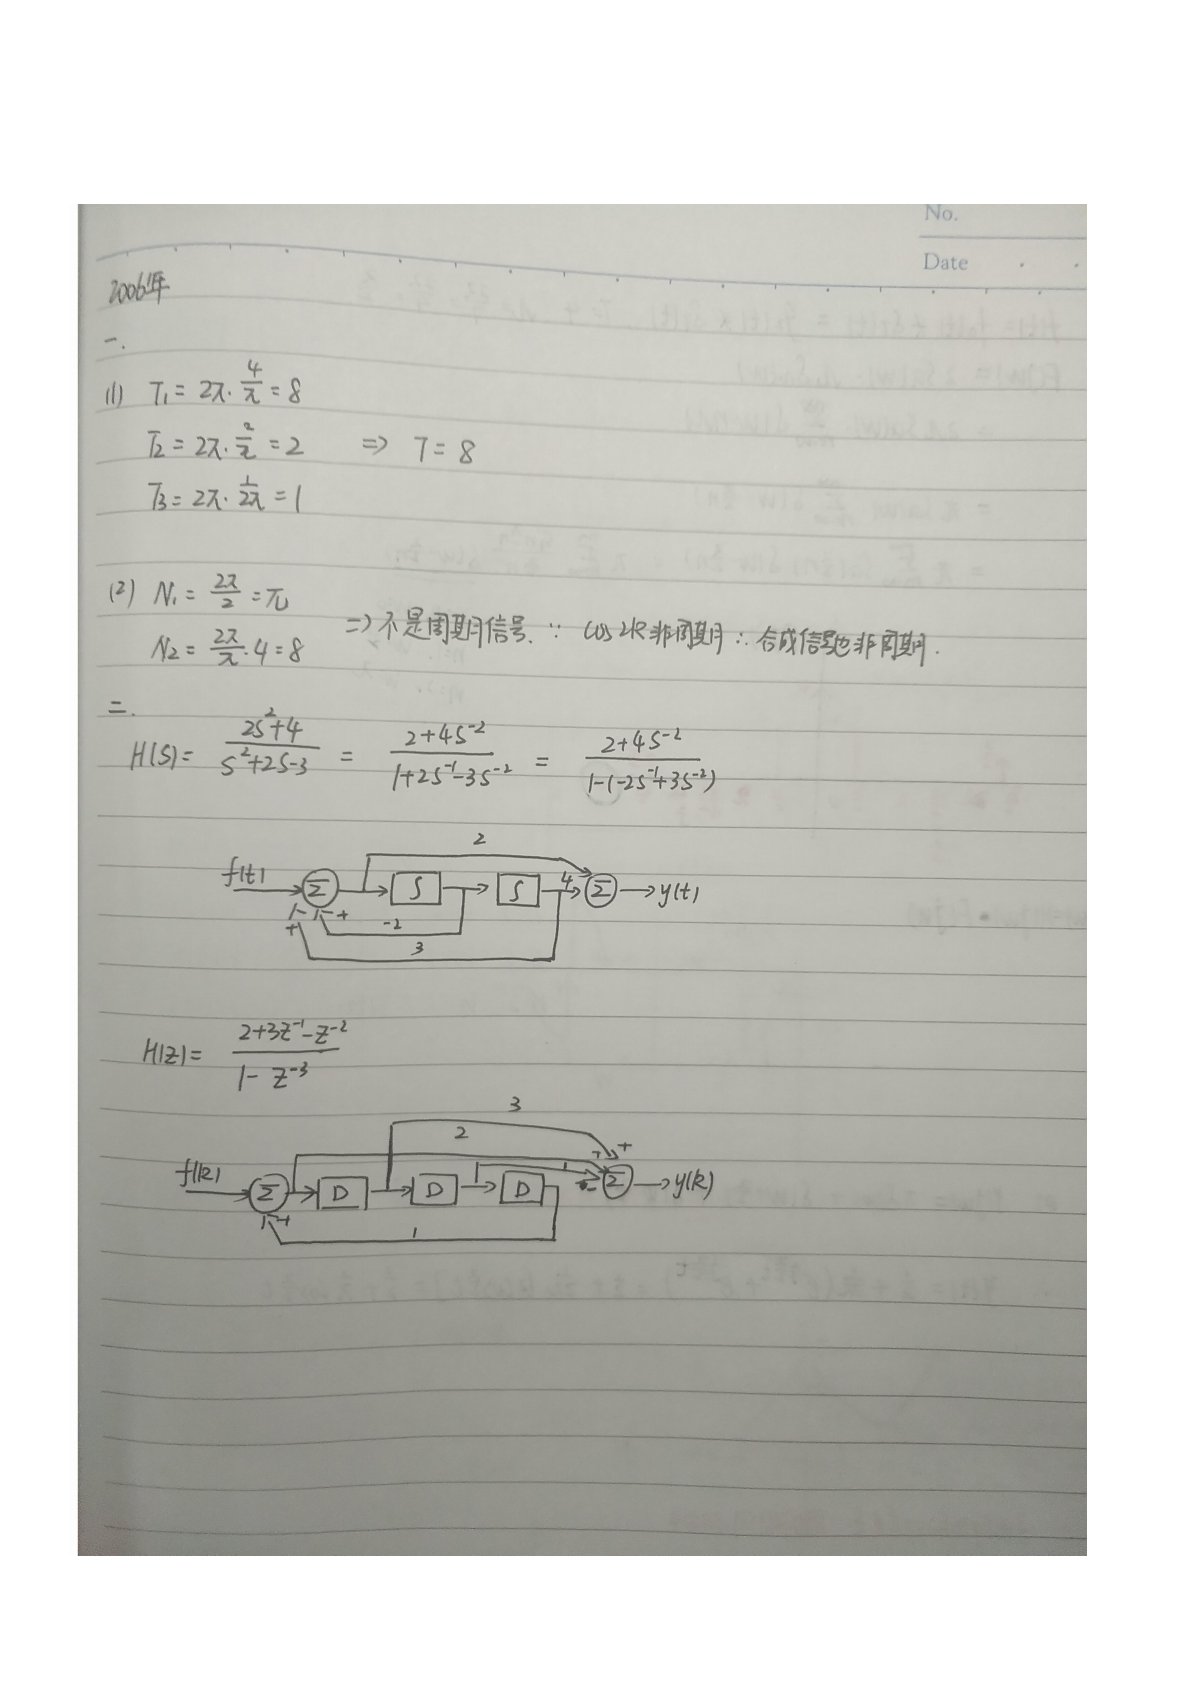 No.
Date
2006年
一.
(1) T₁ = 2π · 4/π = 8
T₂ = 2π · 2/π = 2 ⇒ T = 8
T₃ = 2π · 1/2π = 1
(2) N₁ = 2π/2 = π
⇒ 不是周期信号. ∵ cos2k非周期 ∴ 合成信号也非周期.
N₂ = 2π/π · 4 = 8
二.
H(S) = (2S²+4)/(S²+2S-3) = (2+4S⁻²)/(1+2S⁻¹-3S⁻²) = (2+4S⁻²)/(1-(-2S⁻¹+3S⁻²))
2
f(t) Σ ∫ ∫ 4 Σ y(t)
+ -2
+ 3
H(Z) = (2+3Z⁻¹-Z⁻²)/(1-Z⁻³)
3
2
f(k) Σ D D D Σ y(k)
1